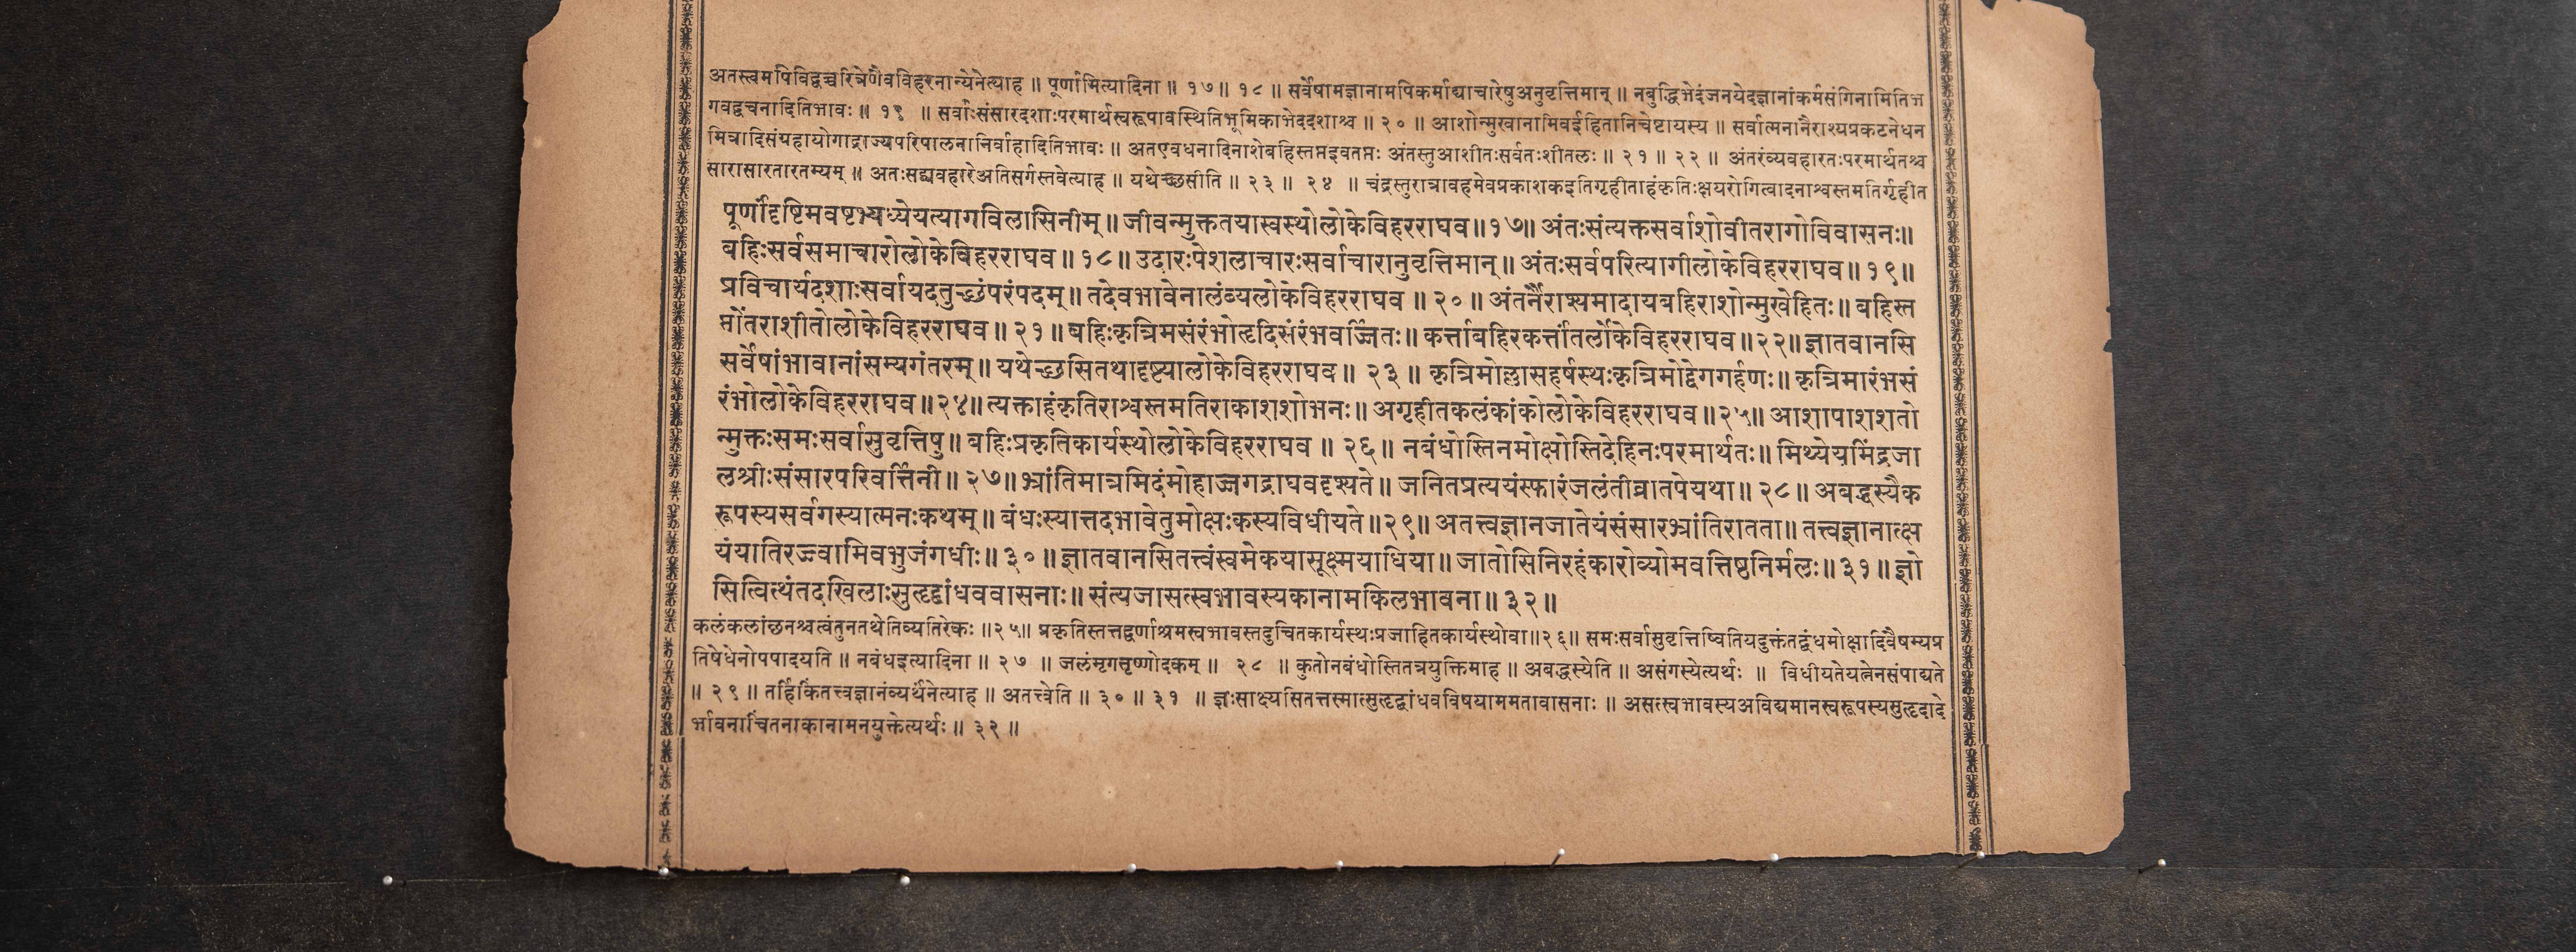 अतस्त्वमपिविद्वच्चरित्रेणैवविहरनान्येनेत्याह ॥ पूर्णामित्यादिना ॥ १७ ॥ १८ ॥ सर्वेषामज्ञानामपिकर्माद्याचारेषुअनुवृत्तिमान् ॥ नबुद्धिभेदंजनयेदज्ञानांकर्मसंगिनामितिभ
गवद्वचनादितिभावः ॥ १९ ॥ सर्वाःसंसारदशाःपरमार्थस्वरूपावस्थितिभूमिकाभेददशाश्च ॥ २० ॥ आशोन्मुखानामिवईहितानिचेष्टायस्य ॥ सर्वात्मनानैराश्यप्रकटनेधन
मित्रादिसंग्रहायोगाद्राज्यपरिपालनानिर्वाहादितिभावः ॥ अतएवधनादिनाशेबहिस्तप्तइवतप्तः अंतस्तुआशीतःसर्वतःशीतलः ॥ २१ ॥ २२ ॥ अंतरंव्यवहारतःपरमार्थतश्च
सारासारतारतम्यम् ॥ अतःसद्व्यवहारेअतिसर्गस्तवेत्याह ॥ यथेच्छसीति ॥ २३ ॥ २४ ॥ चंद्रस्तुरात्रावहमेवप्रकाशकइतिगृहीताहंकृतिःक्षयरोगित्वादनाश्वस्तमतिर्गृहीत
पूर्णांदृष्टिमवष्टभ्यध्येयत्यागविलासिनीम् ॥ जीवन्मुक्ततयास्वस्थोलोकेविहरराघव ॥ १७ ॥ अंतःसंत्यक्तसर्वाशोवीतरागोविवासनः ॥
बहिःसर्वसमाचारोलोकेविहरराघव ॥ १८ ॥ उदारःपेशलाचारःसर्वाचारानुवृत्तिमान् ॥ अंतःसर्वपरित्यागीलोकेविहरराघव ॥ १९ ॥
प्रविचार्यदशाःसर्वायदतुच्छंपरंपदम् ॥ तदेवभावेनालंब्यलोकेविहरराघव ॥ २० ॥ अंतर्नैराश्यमादायबहिराशोन्मुखेहितः ॥ बहिस्त
प्तोंतराशीतोलोकेविहरराघव ॥ २१ ॥ बहिःकृत्रिमसंरंभोहृदिसंरंभवर्ज्जितः ॥ कर्त्ताबहिरकर्त्तांतर्लोकेविहरराघव ॥ २२ ॥ ज्ञातवानसि
सर्वेषांभावानांसम्यगंतरम् ॥ यथेच्छसितथादृष्ट्यालोकेविहरराघव ॥ २३ ॥ कृत्रिमोल्लासहर्षस्थःकृत्रिमोद्वेगगर्हणः ॥ कृत्रिमारंभसं
रंभोलोकेविहरराघव ॥ २४ ॥ त्यक्ताहंकृतिराश्वस्तमतिराकाशशोभनः ॥ अगृहीतकलंकांकोलोकेविहरराघव ॥ २५ ॥ आशापाशशतो
न्मुक्तःसमःसर्वासुवृत्तिषु ॥ बहिःप्रकृतिकार्यस्थोलोकेविहरराघव ॥ २६ ॥ नबंधोस्तिनमोक्षोस्तिदेहिनःपरमार्थतः ॥ मिथ्येयमिंद्रजा
लश्रीःसंसारपरिवर्त्तिनी ॥ २७ ॥ भ्रांतिमात्रमिदंमोहाज्जगद्राघवदृश्यते ॥ जनितप्रत्ययंस्फारंजलंतीव्रातपेयथा ॥ २८ ॥ अबद्धस्यैक
रूपस्यसर्वगस्यात्मनःकथम् ॥ बंधःस्यात्तदभावेतुमोक्षःकस्यविधीयते ॥ २९ ॥ अतत्त्वज्ञानजातेयंसंसारभ्रांतिरातता ॥ तत्त्वज्ञानात्क्ष
यंयातिरज्ज्वामिवभुजंगधीः ॥ ३० ॥ ज्ञातवानसितत्त्वंस्वमेकयासूक्ष्मयाधिया ॥ जातोसिनिरहंकारोव्योमवत्तिष्ठनिर्मलः ॥ ३१ ॥ ज्ञो
सित्वित्थंतदखिलाःसुहृद्बांधववासनाः ॥ संत्यजासत्स्वभावस्यकानामकिलभावना ॥ ३२ ॥
कलंकलांछनश्चत्वंतुनतथेतिव्यतिरेकः ॥ २५ ॥ प्रकृतिस्तत्तद्वर्णाश्रमस्वभावस्तदुचितकार्यस्थःप्रजाहितकार्यस्थोवा ॥ २६ ॥ समःसर्वासुवृत्तिष्वितियदुक्तंतद्बंधमोक्षादिवैषम्यप्र
तिषेधेनोपपादयति ॥ नबंधइत्यादिना ॥ २७ ॥ जलंमृगतृष्णोदकम् ॥ २८ ॥ कुतोनबंधोस्तितत्रयुक्तिमाह ॥ अबद्धस्येति ॥ असंगस्येत्यर्थः ॥ विधीयतेयत्नेनसंपाद्यते
॥ २९ ॥ तर्हिकिंतत्त्वज्ञानंव्यर्थंनेत्याह ॥ अतत्त्वेति ॥ ३० ॥ ३१ ॥ ज्ञःसाक्ष्यसितत्तस्मात्सुहृद्बांधवविषयाममतावासनाः ॥ असत्स्वभावस्यअविद्यमानस्वरूपस्यसुहृदादे
र्भावनाचिंतनाकानामनयुक्तेत्यर्थः ॥ ३२ ॥